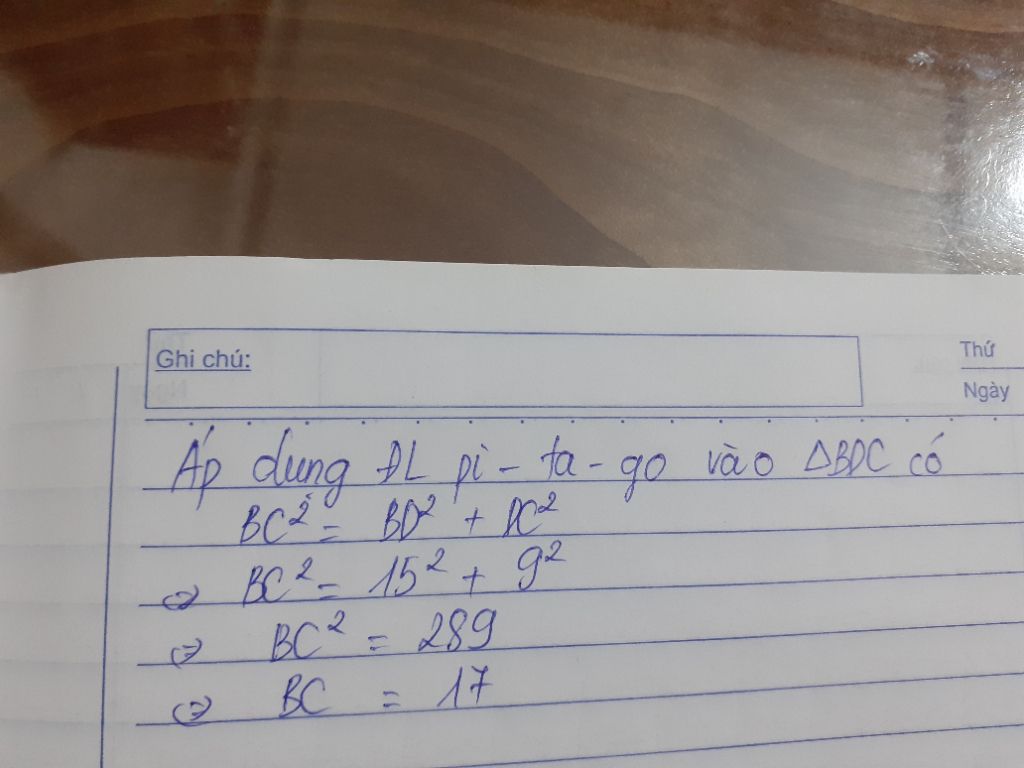 Ghi chú:
Thứ
Ngày
Áp dung ĐL pi - ta - go vào ΔBDC có
BC² = BD² + DC²
⇒ BC² = 15² + 9²
⇒ BC² = 289
⇒ BC = 17